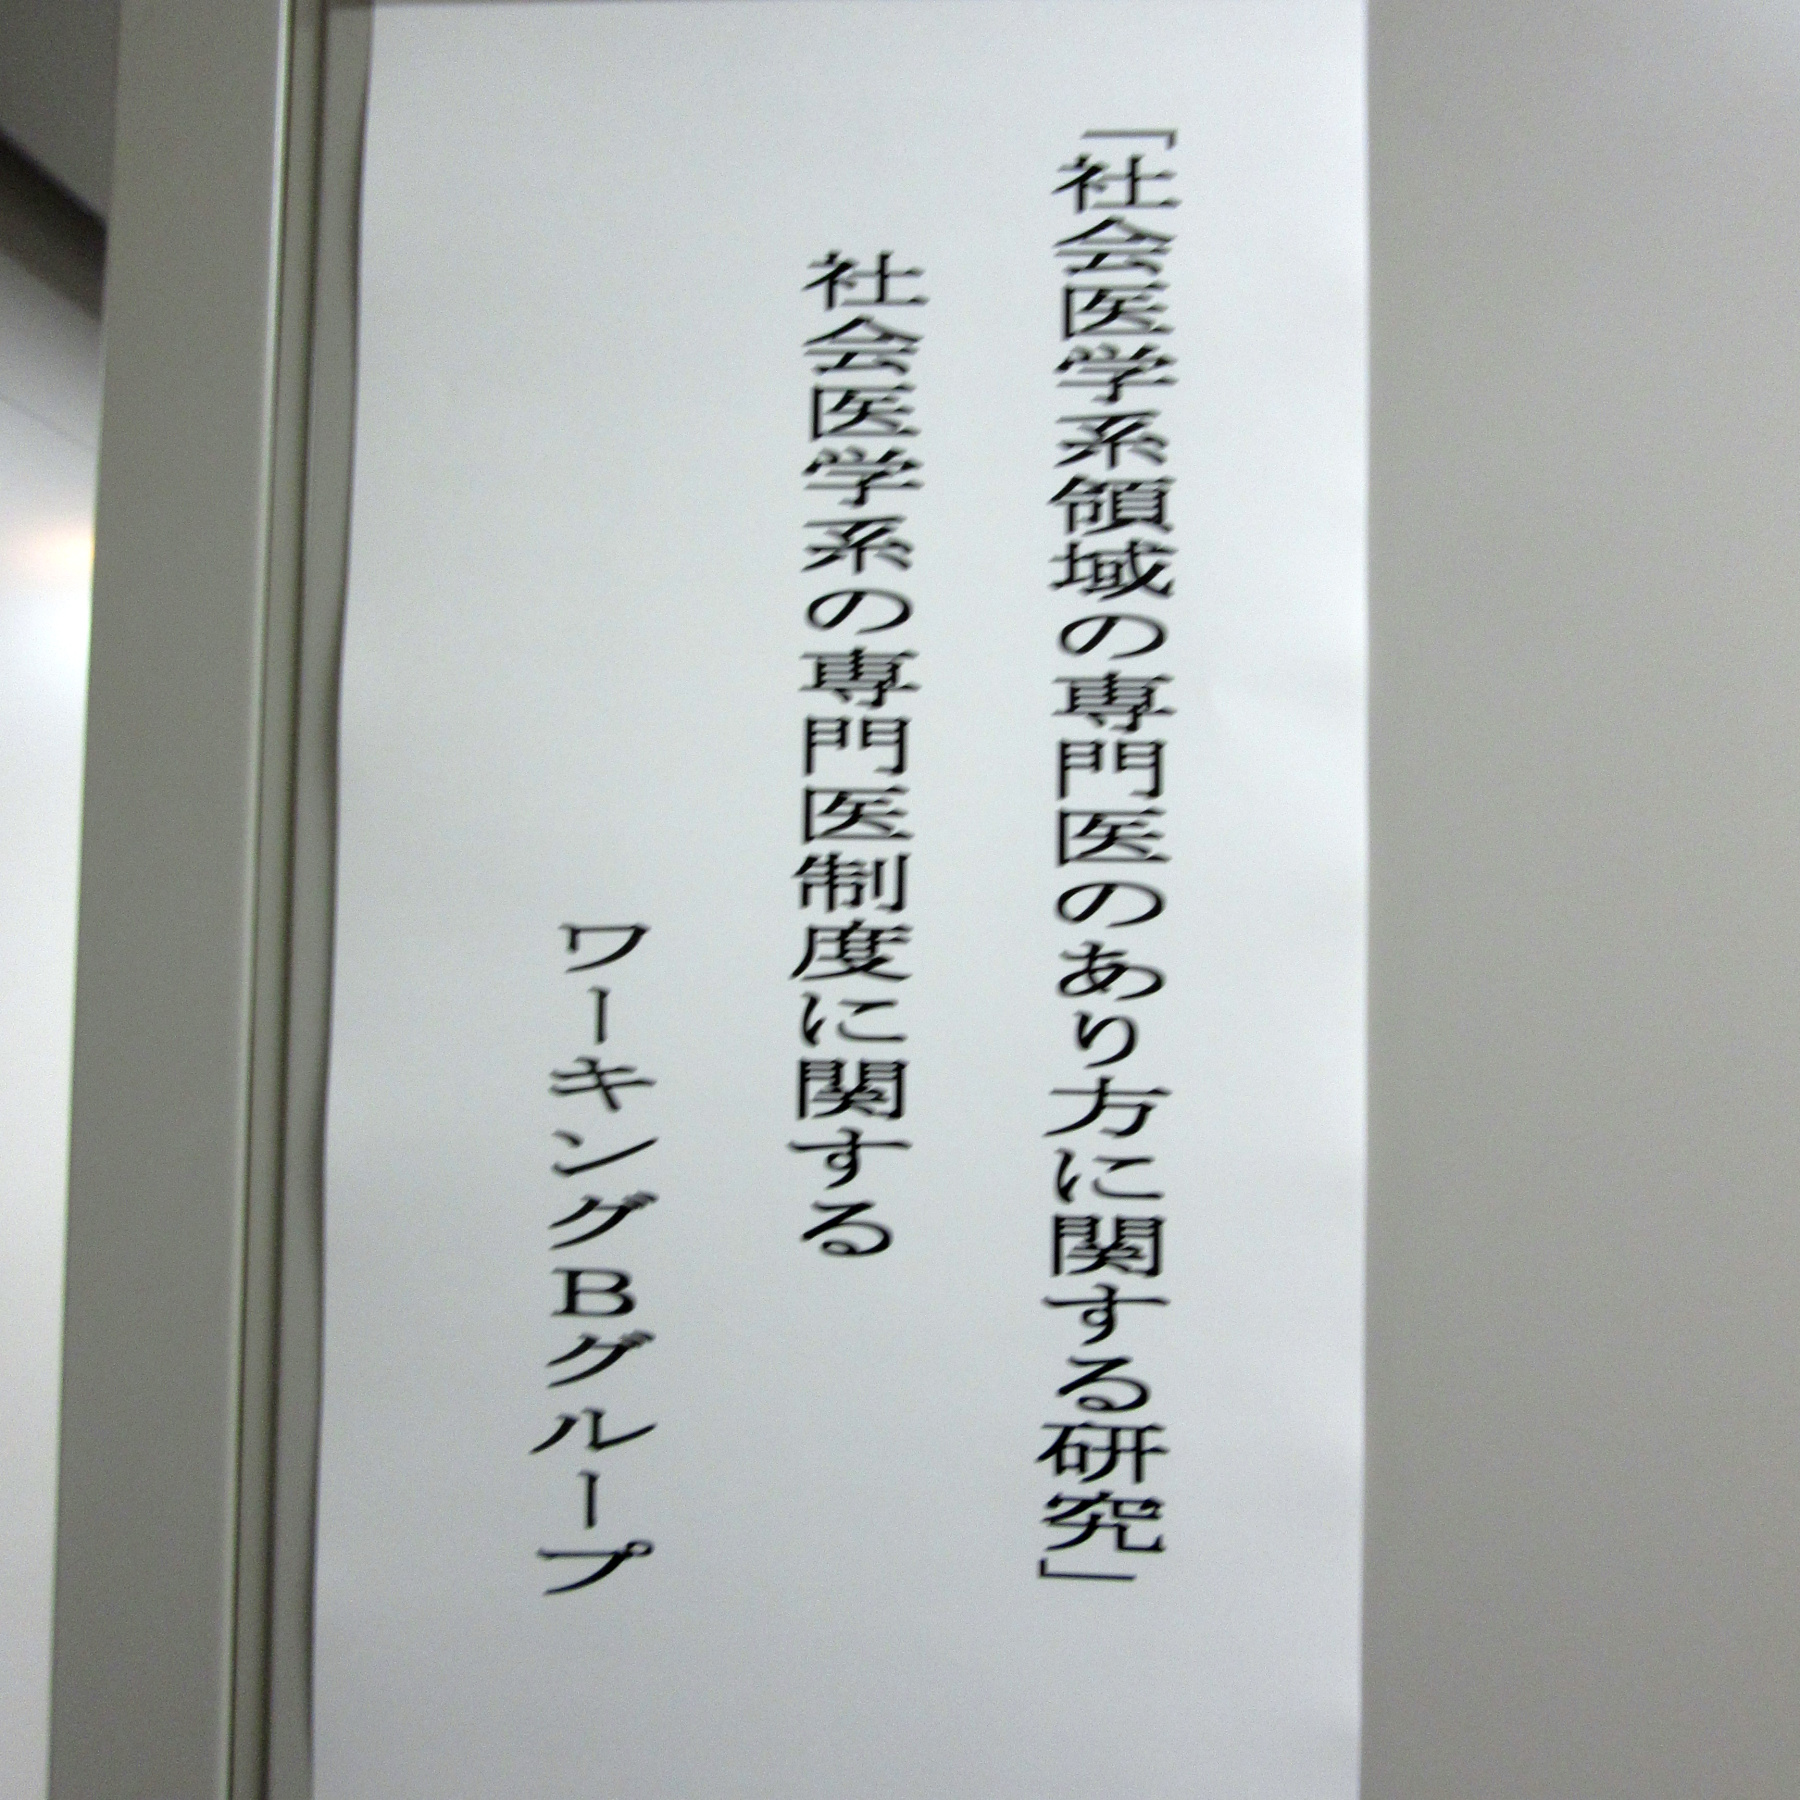 「社会医学系領域の専門医のあり方に関する研究」
社会医学系の専門医制度に関する
ワーキングBグループ